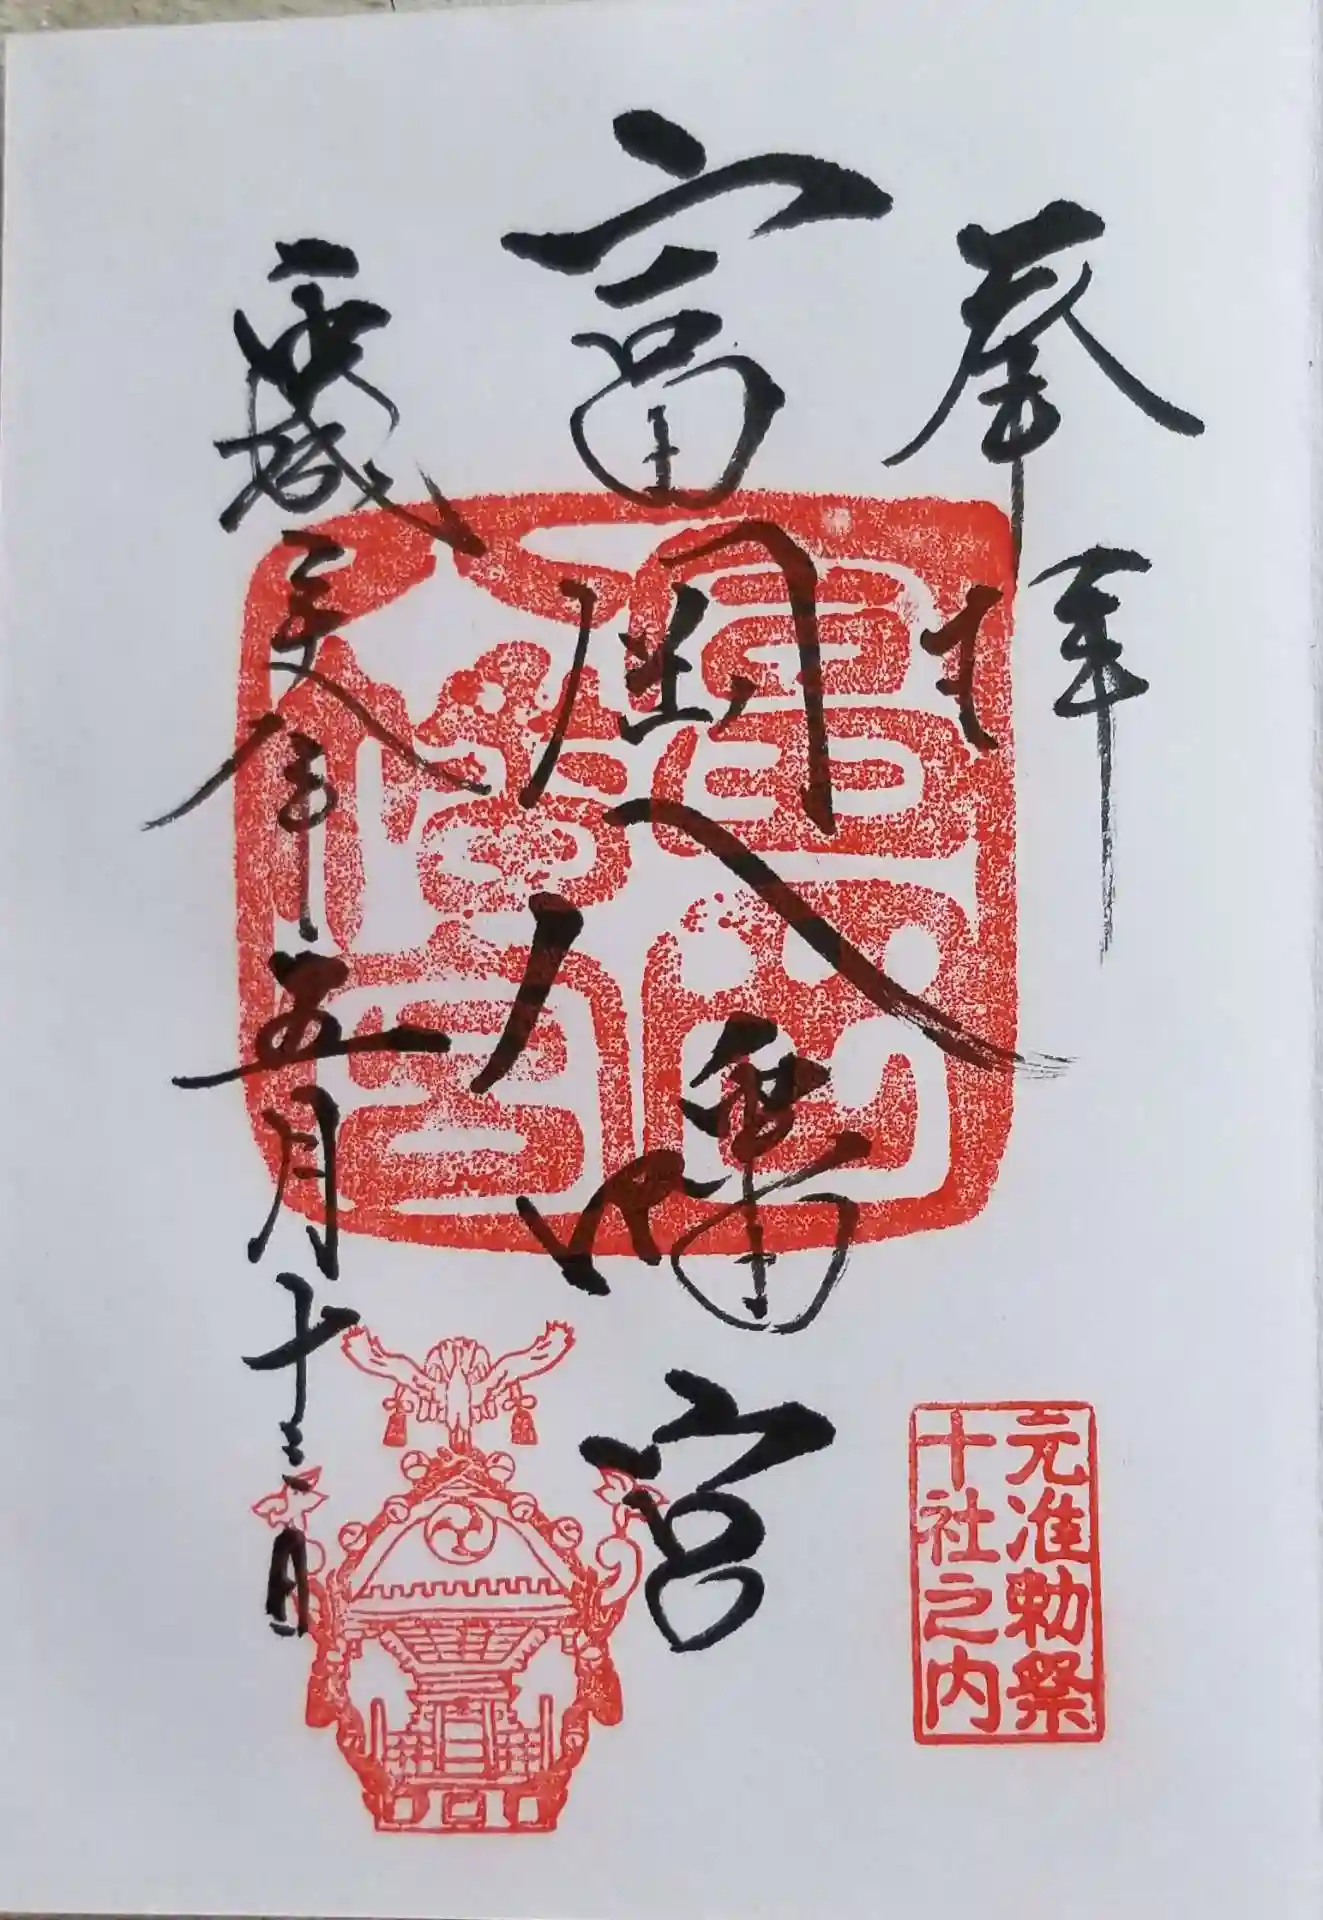 奉拝
富岡八幡宮
平成二十八年五月十三日
富岡
八幡宮
元准勅祭
十社之内